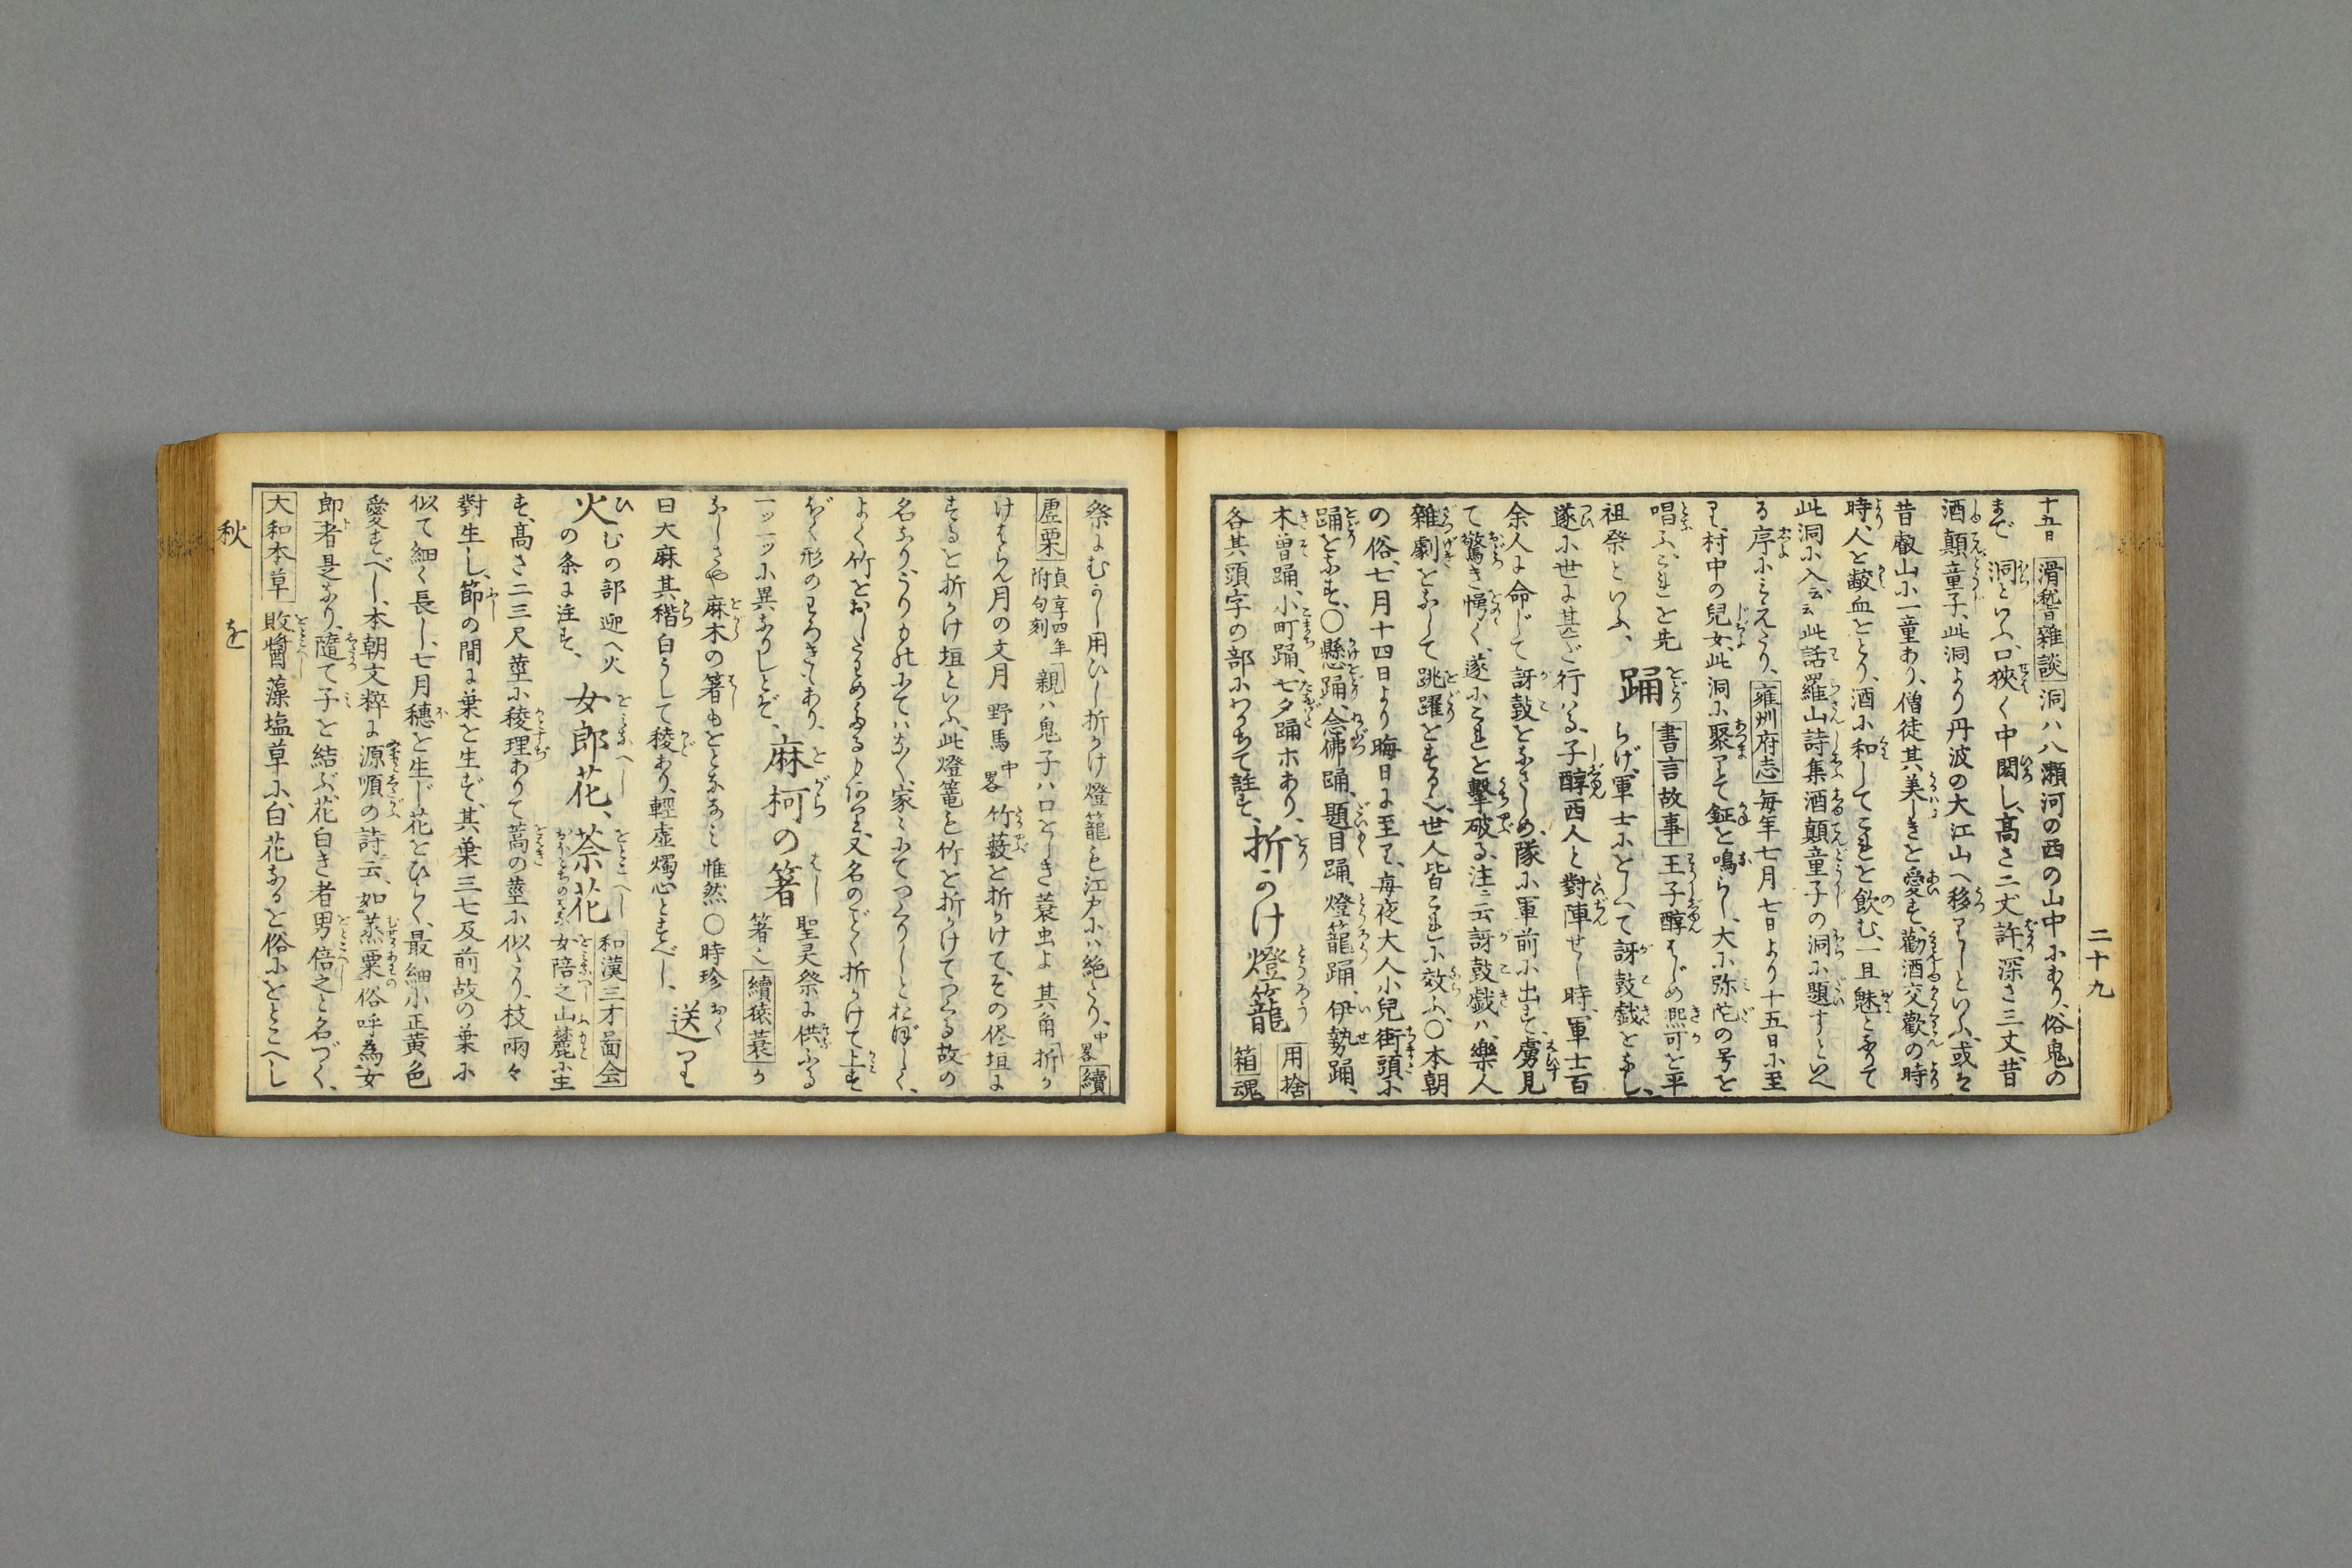 二十九
十五日まで 滑稽雑談 洞ハ八瀬河の西の山中にあり、俗鬼の
洞といふ、口狭く中闊し、高さ二丈許、深さ三丈、昔
酒顛童子、此洞より丹波の大江山へ移りしといふ、或は
昔叡山に一童あり、僧徒其美しきを愛す、勸酒交歡の時
時、人を齩血をとり、酒に和してこれを飲む、一旦魅となりて
此洞に入云云、此話羅山詩集酒顛童子の洞に題すといへ
る序にみえたり、雍州府志 毎年七月七日より十五日に至
り、村中の兒女、此洞に聚りて鉦を鳴らし、大に弥陀の号を
唱ふ、これを先
祖祭といふ、 踊 書言故事 王子醇はじめ熙可を平
らげ、軍士にをしへて訝鼓戯をなし、
遂に世に甚ご行はる、子醇西人と對陣せし時、軍士百
余人に命じて訝鼓をなさしめ、隊に軍前に出す、虜見
て驚き愕く、遂にこれを擊破る、注ニ云訝鼓戯ハ、樂人
雜劇をなして跳躍をする也、世人皆これに效ふ、〇本朝
の俗、七月十四日より晦日に至り、毎夜大人小兒街頭に
踊をなす、〇懸踊、念佛踊、題目踊、燈籠踊、伊勢踊、
木曽踊、小町踊、七夕踊ホあり、 折かけ燈籠 用捨箱
各其頭字の部にわかちて註す、 魂
祭にむかし用ひし折かけ燈籠も江戸にハ絶たり、中畧 續
虚栗 貞享四年附句刻 親ハ鬼子ハ口をしき蓑虫よ 其角 折か
けはらん月の文月 野馬 中畧 竹藪を折かけて、その侭垣に
するを折かけ垣といふ、此燈篭も竹を折かけてつくる故の
名なり、うりものにてハなく、家ミにてつくりしとおぼしく、
よく竹をおしためある、又名のごく折かけて上す
ぼく形のわろきもあり、 麻柯の箸 聖灵祭に供ふる
一ッ一ッに異なりしとぞ、 箸也 續猿蓑 か
なしさや麻木の箸もをとななミ 惟然 〇時珍
曰大麻其稭白うして稜あり、輕虚燭心とすべし、 送り
火 むの部迎へ火の条に注す、 女郎花、 荼花 和漢三才圖会
女陪之山麓に生
す、高さ二三尺莖に稜理ありて蒿の莖に似たり、枝兩々
對生し、節の間に葉を生ず、其葉三七及前故の葉に
似て細く長し、七月穗を生じ花をひらく、最細小正黄色
愛すべし、本朝文粹に源順の詩云、如蒸粟俗呼為女
郎者是なり、隨て子を結ぶ、花白き者男倍之と名づく、
大和本草 敗醬藻塩草に、白花なるを俗にをとこへし
秋 を